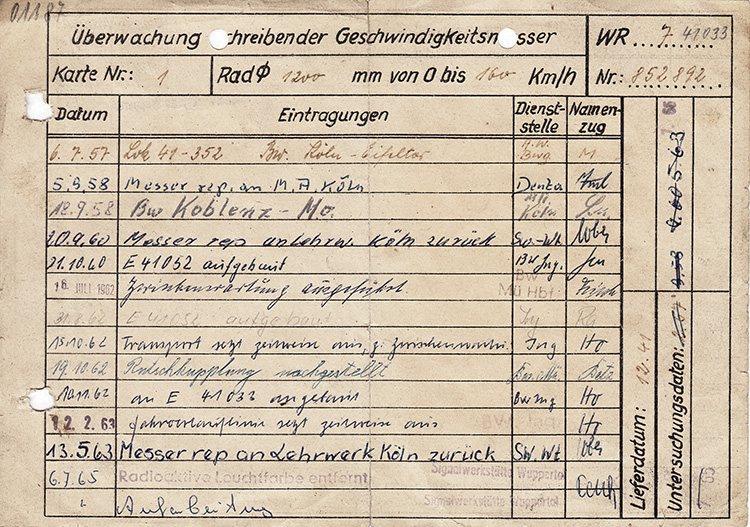 01187
Überwachung schreibender Geschwindigkeitsmesser WR 7 41033
Karte Nr.: 1 Rad Φ 1200 mm von 0 bis 160 Km/h Nr.: 852892
Datum Eintragungen Dienst-stelle Namen-zug
6.7.57 Lok 41-352 Bw. Köln-Eifeltor
5.9.58 Messer rep. an M.A. Köln Deuta
18.9.58 Bw Koblenz-Mo. Köln
20.9.60 Messer rep an Lehrw. Köln zurück Sw.-Wt
21.10.60 E 41052 aufgebaut Bw Ing.
16. JULI 1962 Zwischenwartung ausgeführt Bw Mü Hbf
31.8.62 E 41052 aufgebaut
15.10.62 Transport setzt zeitweise aus, Ing Ho
19.10.62 Rutschkupplung nachgestellt
10.11.62 an E 41033 angebaut Bw Ing Ho
12.2.63 setzt zeitweise aus Bw. Ing. Ho
13.5.63 Messer rep an Lehrwerk Köln zurück Sw. Wt
6.7.65 Radioaktive Leuchtfarbe entfernt Signalwerkstätte Wuppertal
" Aufarbeitung Signalwerkstätte Wuppertal
Lieferdatum: 12.41
Untersuchungsdaten: